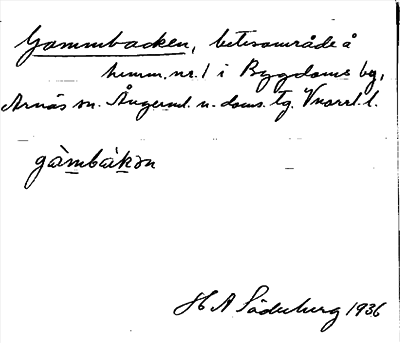 Gammbacken, betesområde å
hemm. nr. 1 i Bygdoms by,
Arnäs sn. Ångerml. n. doms. tg. Vnorrl. l.
gàmbàkən
H A Söderberg 1936